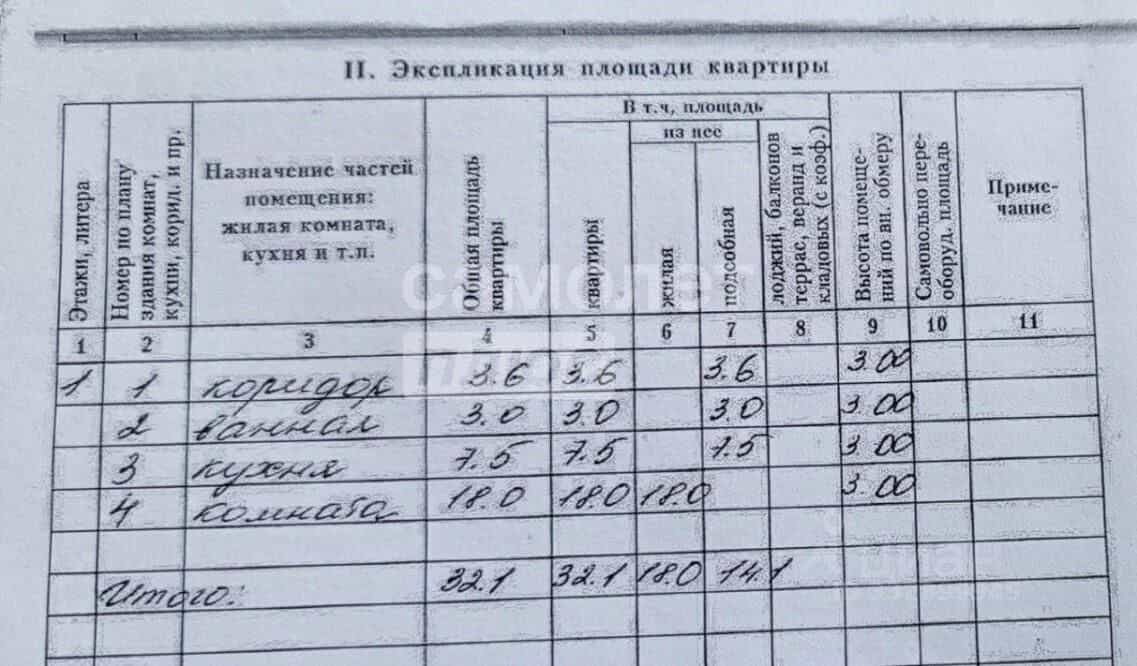 II. Экспликация площади квартиры
Этажи, литера
Номер по плану здания комнат, кухни, корид. и пр.
Назначение частей помещения: жилая комната, кухня и т.п.
Общая площадь квартиры
В т.ч, площадь
из нее
квартиры
жилая
подсобная
лоджий, балконов террас, веранд и кладовых (с коэф.)
Высота помещений по вн. обмеру
Самовольно переоборуд. площадь
Примечание
1 2 3 4 5 6 7 8 9 10 11
1 1 коридор 3.6 3.6 3.6 3.00
2 ванная 3.0 3.0 3.0 3.00
3 кухня 7.5 7.5 7.5 3.00
4 комната 18.0 18.0 18.0 3.00
Итого: 32.1 32.1 18.0 14.1
самолет
плюс
циан